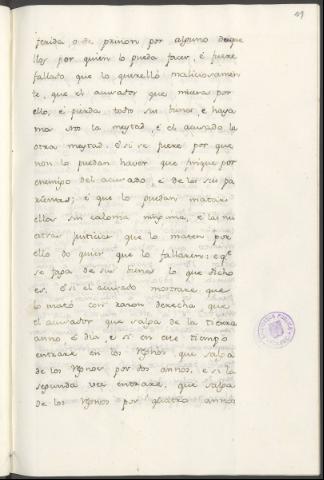 49
ferida o de prision por alguno daque
llos por quien lo pueda facer, é fuere
fallado que lo querelló maliciosamen
te, que el acusador que muera por
ello, é pierda todos sus bienes, é haya
mos Nos la meytad, é el acusado la
otra meytad. E si se fuere por que
non lo puedan haver que finque por
enemigo del acusado, é de los sus pa
rientes; é que lo puedan matar
ellos sin calonia ninguna, é las nu
estras justicias que lo maten por
ello do quier que lo fallaren: é q.e
se faga de sus bienes lo que dicho
es. E si el acusado mostrare que
lo mató con razon derecha que
el acusador que salga de la tierra
anno, é dia, é si en este tiempo
entrare en los Regnos que salga
de los Regnos por dos annos, é si la
segunda vez entrare, que salga
de los Regnos por quatro annos